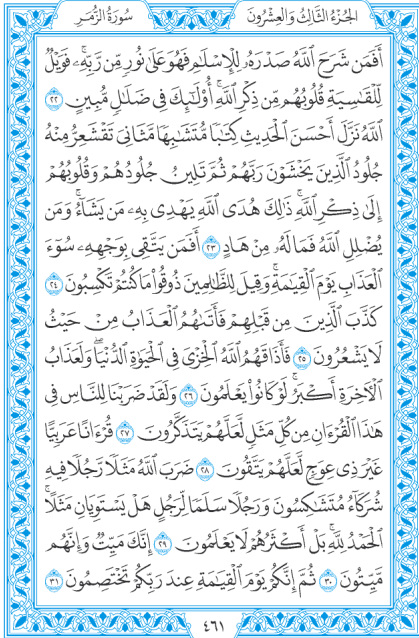 الجُزْءُ الثَّالِثُ وَالعِشْرُونَ سُورَةُ الزُّمَرِ
أَفَمَن شَرَحَ ٱللَّهُ صَدْرَهُۥ لِلْإِسْلَٰمِ فَهُوَ عَلَىٰ نُورٍ مِّن رَّبِّهِۦۚ فَوَيْلٌ
لِّلْقَٰسِيَةِ قُلُوبُهُم مِّن ذِكْرِ ٱللَّهِۚ أُو۟لَٰٓئِكَ فِى ضَلَٰلٍ مُّبِينٍ ٢٢
ٱللَّهُ نَزَّلَ أَحْسَنَ ٱلْحَدِيثِ كِتَٰبًا مُّتَشَٰبِهًا مَّثَانِىَ تَقْشَعِرُّ مِنْهُ
جُلُودُ ٱلَّذِينَ يَخْشَوْنَ رَبَّهُمْ ثُمَّ تَلِينُ جُلُودُهُمْ وَقُلُوبُهُمْ
إِلَىٰ ذِكْرِ ٱللَّهِۚ ذَٰلِكَ هُدَى ٱللَّهِ يَهْدِى بِهِۦ مَن يَشَآءُۚ وَمَن
يُضْلِلِ ٱللَّهُ فَمَا لَهُۥ مِنْ هَادٍ ٢٣ أَفَمَن يَتَّقِى بِوَجْهِهِۦ سُوٓءَ
ٱلْعَذَابِ يَوْمَ ٱلْقِيَٰمَةِۚ وَقِيلَ لِلظَّٰلِمِينَ ذُوقُوا۟ مَا كُنتُمْ تَكْسِبُونَ ٢٤
كَذَّبَ ٱلَّذِينَ مِن قَبْلِهِمْ فَأَتَىٰهُمُ ٱلْعَذَابُ مِنْ حَيْثُ
لَا يَشْعُرُونَ ٢٥ فَأَذَاقَهُمُ ٱللَّهُ ٱلْخِزْىَ فِى ٱلْحَيَوٰةِ ٱلدُّنْيَاۖ وَلَعَذَابُ
ٱلْءَاخِرَةِ أَكْبَرُۚ لَوْ كَانُوا۟ يَعْلَمُونَ ٢٦ وَلَقَدْ ضَرَبْنَا لِلنَّاسِ فِى
هَٰذَا ٱلْقُرْءَانِ مِن كُلِّ مَثَلٍ لَّعَلَّهُمْ يَتَذَكَّرُونَ ٢٧ قُرْءَانًا عَرَبِيًّا
غَيْرَ ذِى عِوَجٍ لَّعَلَّهُمْ يَتَّقُونَ ٢٨ ضَرَبَ ٱللَّهُ مَثَلًا رَّجُلًا فِيهِ
شُرَكَآءُ مُتَشَٰكِسُونَ وَرَجُلًا سَلَمًا لِّرَجُلٍ هَلْ يَسْتَوِيَانِ مَثَلًاۚ
ٱلْحَمْدُ لِلَّهِۚ بَلْ أَكْثَرُهُمْ لَا يَعْلَمُونَ ٢٩ إِنَّكَ مَيِّتٌ وَإِنَّهُم
مَّيِّتُونَ ٣٠ ثُمَّ إِنَّكُمْ يَوْمَ ٱلْقِيَٰمَةِ عِندَ رَبِّكُمْ تَخْتَصِمُونَ ٣١
٤٦١